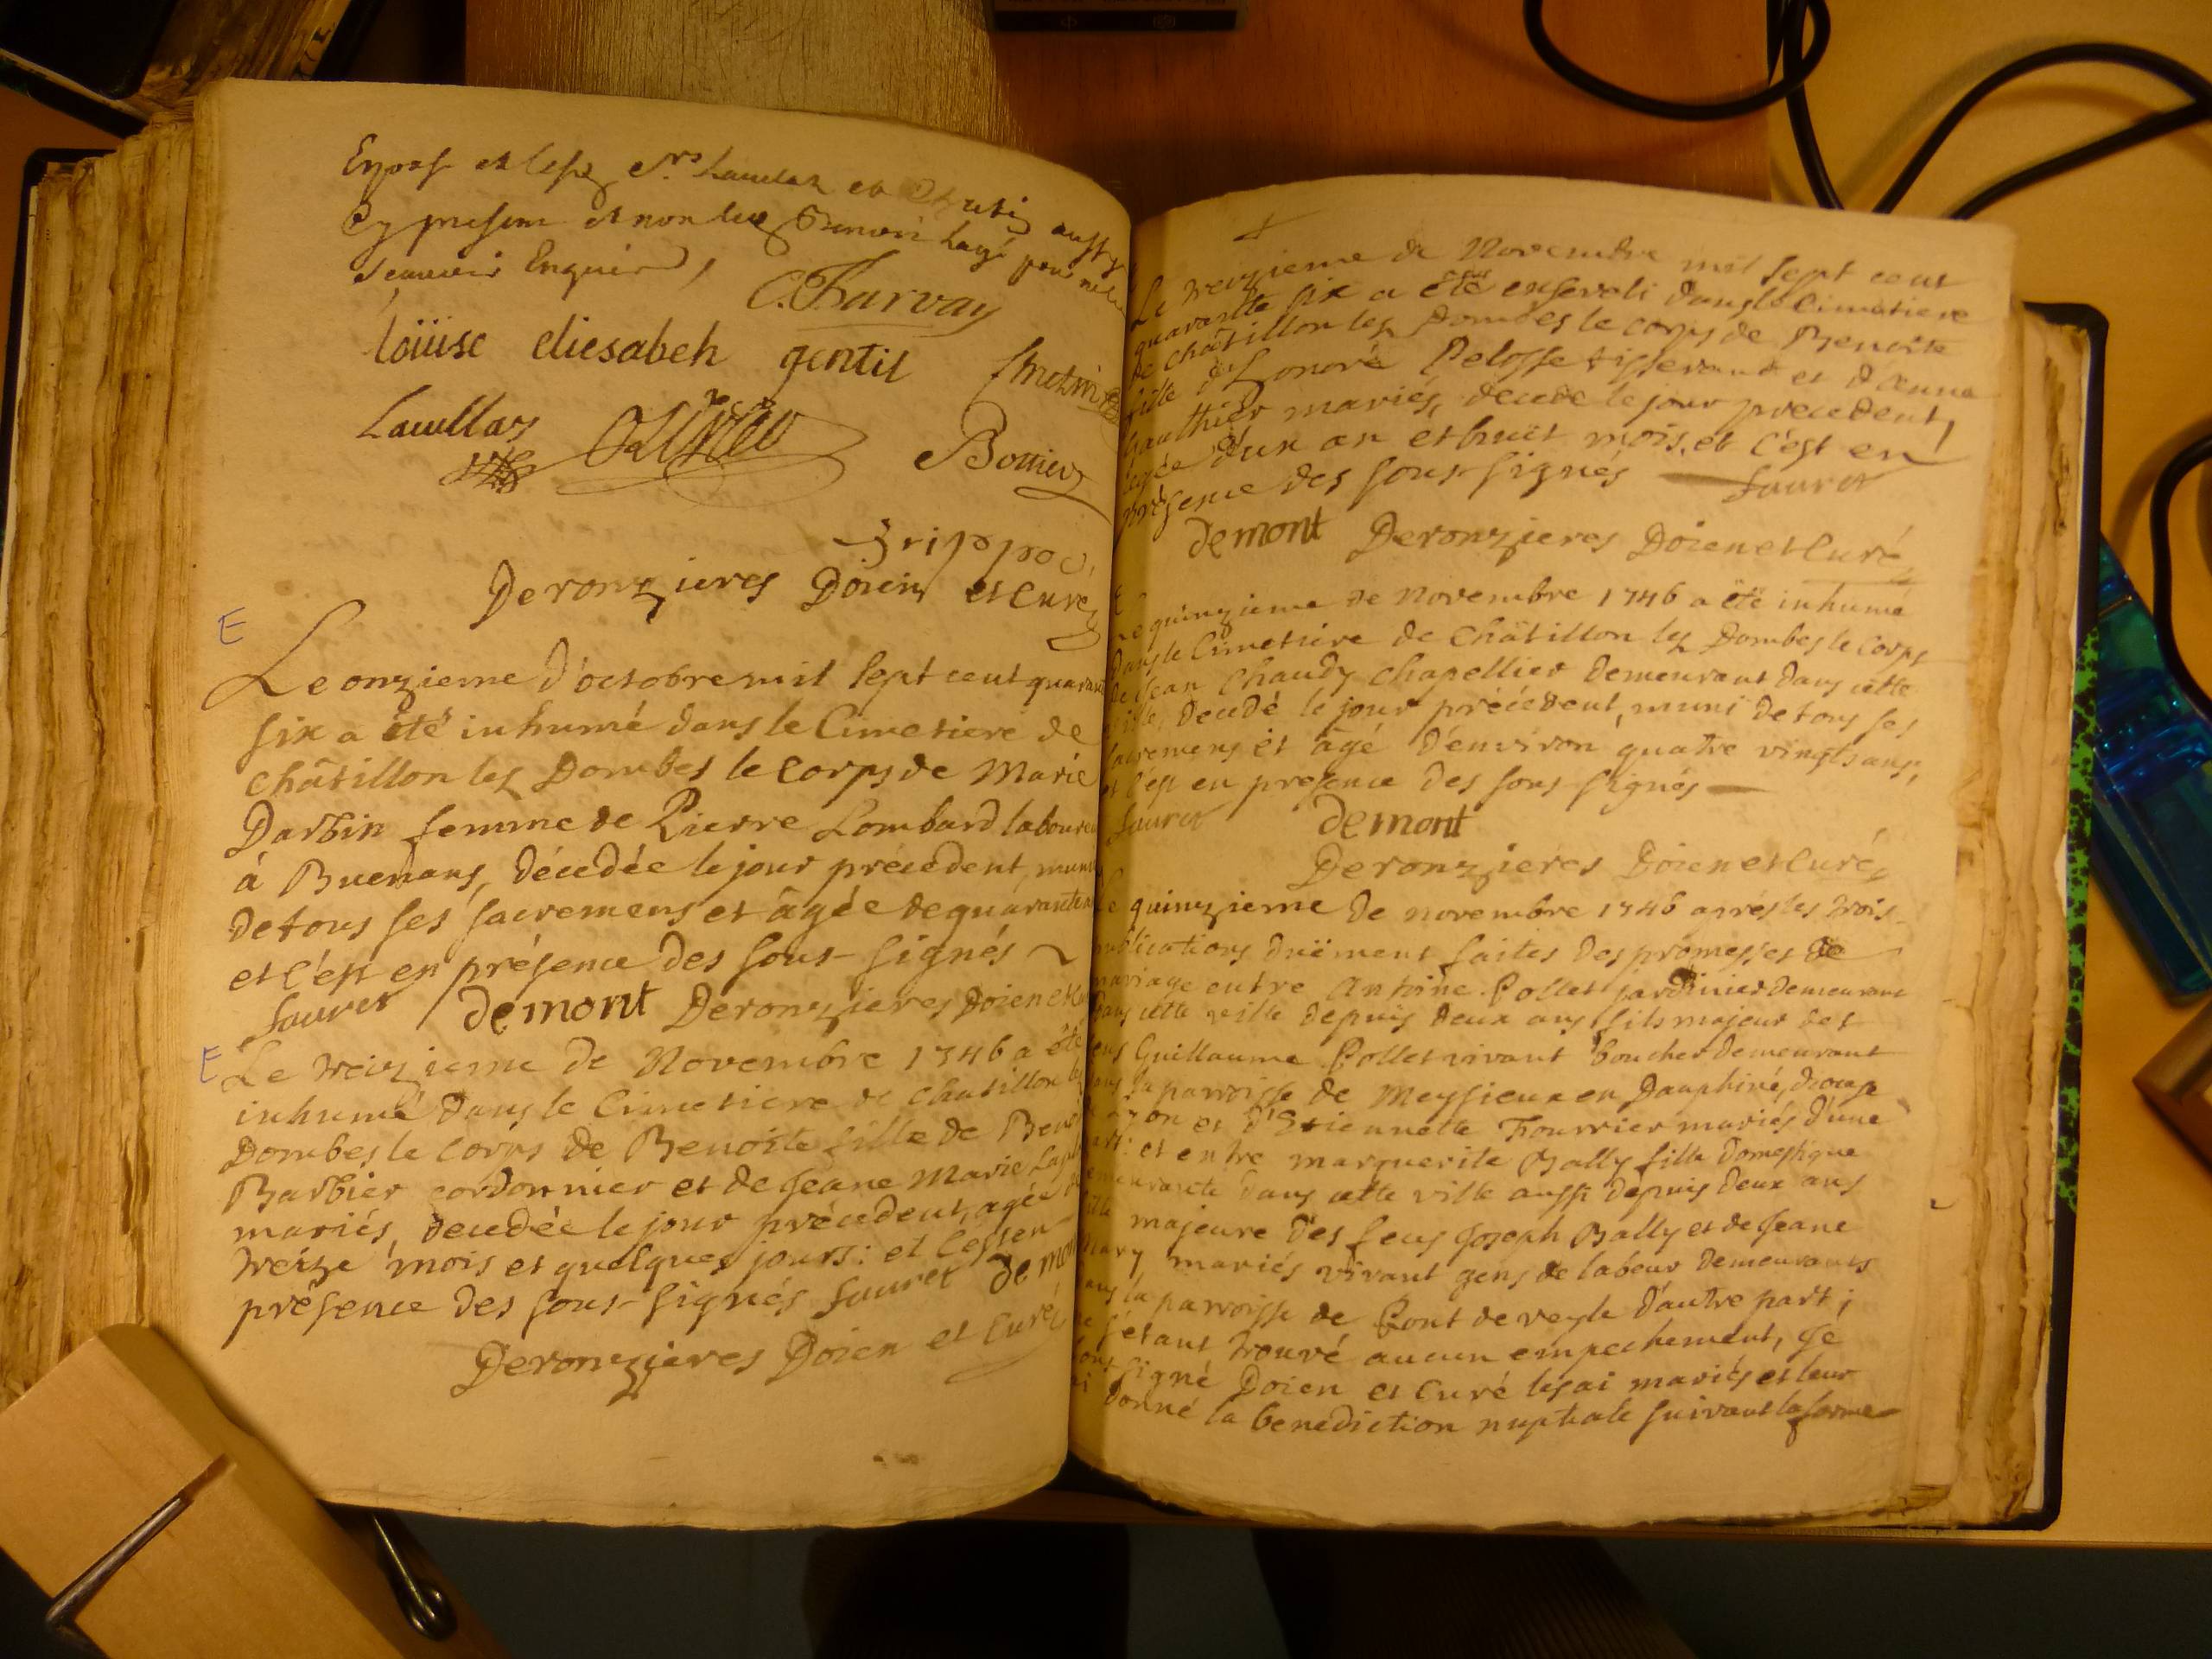 Epoux et lesd. Srs Lauullas et Chretin aussy
cy presens et non led. Benoit Lagé pour ne le
scauoir Enquis,
C. Charvay
loüise eliesabeh gentil Chretin
Lauullas Bottier
Deronzieres Doien et Curé
E
Le onzieme d'octobre mil sept cent quarante
six a été inhumé dans le Cimetiere de
châtillon les Dombes le corps de Marie
Darbin femme de Pierre Lombard laboureur
à Buenans, décédée le jour précédent, munie
de tous ses sacremens et âgée de quarante
et c'est en présence des sous-signés
Sauret demont Deronzieres Doien et
E
Le treizieme de Novembre 1746 a été
inhumé dans le Cimetiere de chatillon les
Dombes le corps de Benoite fille de Benoit
Barbier cordonnier et de Jeane Marie
mariés, decedée le jour précedent, agée de
treize mois et quelques jours: et c'est en
présence des sous-signés Sauret demont
Deronzieres Doien et Curé
Le treizieme de Novembre mil sept cent
quarantte six a été enseveli dans le Cimetiere
de châtillon les Dombes le corps de Benoite
fille d'honoré Pelosse tisserand et d'anne
Gauthier mariés, decedé le jour precedent,
agée d'un an et huit mois, et c'est en
présence des sous-signés Sauret
demont Deronzieres Doien et Curé
Le quinzieme de Novembre 1746 a été inhumé
dans le Cimetiére de Châtillon les Dombes le corps
de Jean Chaudy chapellier demeurant dans cette
ville, decedé le jour précédent, muni de tous ses
sacremens et âgé d'environ quatre vingts ans,
et c'est en presence des sous signés
Sauret demont
Deronzieres Doien et Curé
Le quinzieme de novembre 1746 aprés les trois
publications duëment faites des promesses de
mariage entre Antoine Pollet jardinier demeurant
dans cette ville depuis deux ans fils majeur des
feus Guillaume Pollet vivant boucher demeurant
dans la parroisse de Meysieux en Dauphiné, diocese
de Lyon et d'Etiennette Fourrier mariés d'une
part: et entre marguerite Bally fille domestique
demeurante dans cette ville aussi depuis deux ans
fille majeure des feus Joseph Bally et de Jeane
mariés vivant gens de labeur demeurants
dans la parroisse de Pont de veyle d'autre part;
ne s'étant trouvé aucun empechement, Je
sous signé Doien et Curé les ai mariés et leur
ai donné la benediction nuptiale suivant la forme